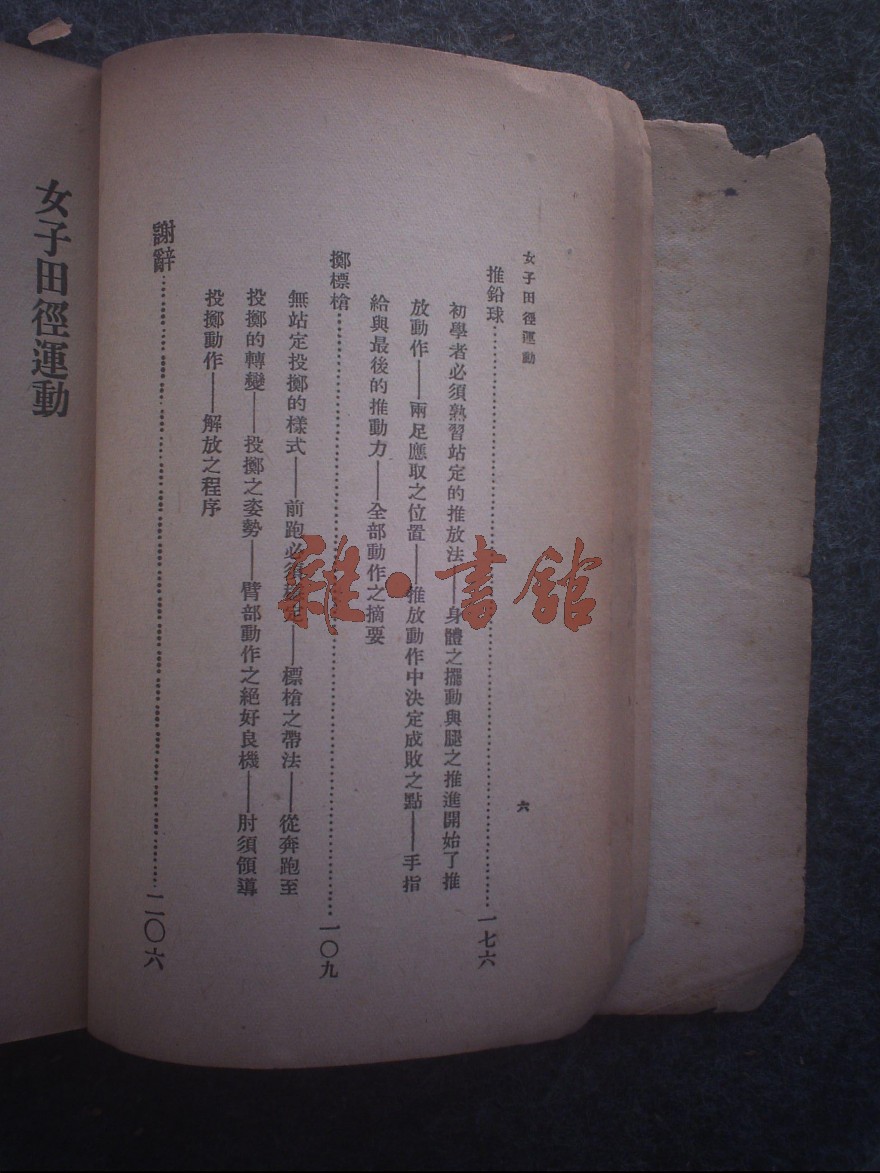 女子田徑運動
六
推鉛球……一七六
初學者必須熟習站定的推放法——身體之擺動與腿之推進開始了推
放動作——兩足應取之位置——推放動作中決定成敗之點——手指
給與最後的推動力——全部動作之摘要
擲標槍……一〇九
無站定投擲的樣式——前跑必須 定——標槍之帶法——從奔跑至
投擲的轉變——投擲之姿勢——臂部動作之絕好良機——肘須領導
投擲動作——解放之程序
謝辭……二〇六
女子田徑運動
雜·書館